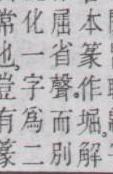 本篆作堀解
屈省聲。而別
化一字爲二
常也、豈有篆